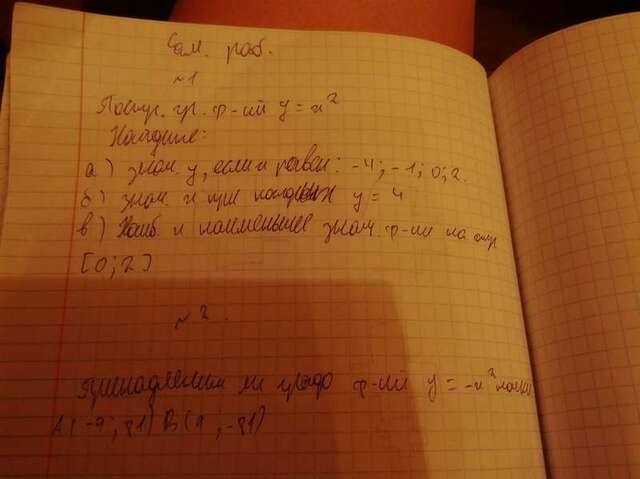 Сам. раб.
№1
Постр. гр. ф-ий y = x²
Найдите:
а) знач y, если x равен: -4; -1; 0; 2.
б) знач x при которых y = 4
в) Наиб. и наименьшее знач. ф-ии на отр
[0; 2]
№2.
Принадлежит ли графо ф-ий y = -x² точки
A(-9; 81) B(9; -81)